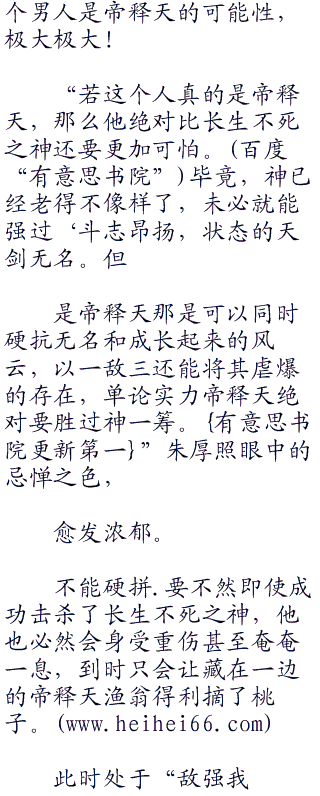 个男人是帝释天的可能性，
极大极大！
“若这个人真的是帝释
天，那么他绝对比长生不死
之神还要更加可怕。(百度
“有意思书院”)毕竟，神已
经老得不像样了，未必就能
强过‘斗志昂扬，状态的天
剑无名。但
是帝释天那是可以同时
硬抗无名和成长起来的风
云，以一敌三还能将其虐爆
的存在，单论实力帝释天绝
对要胜过神一筹。{有意思书
院更新第一}”朱厚照眼中的
忌惮之色，
愈发浓郁。
不能硬拼.要不然即使成
功击杀了长生不死之神，他
也必然会身受重伤甚至奄奄
一息，到时只会让藏在一边
的帝释天渔翁得利摘了桃
子。(www.heihei66.com)
此时处于“敌强我